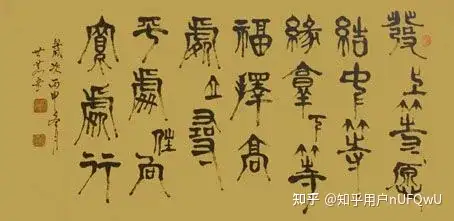 發上等愿
結中等
緣享下等
福擇高
處立尋
平處住向
寬處行
歲次丙申冬月
知乎 @知乎用户nUFQwU